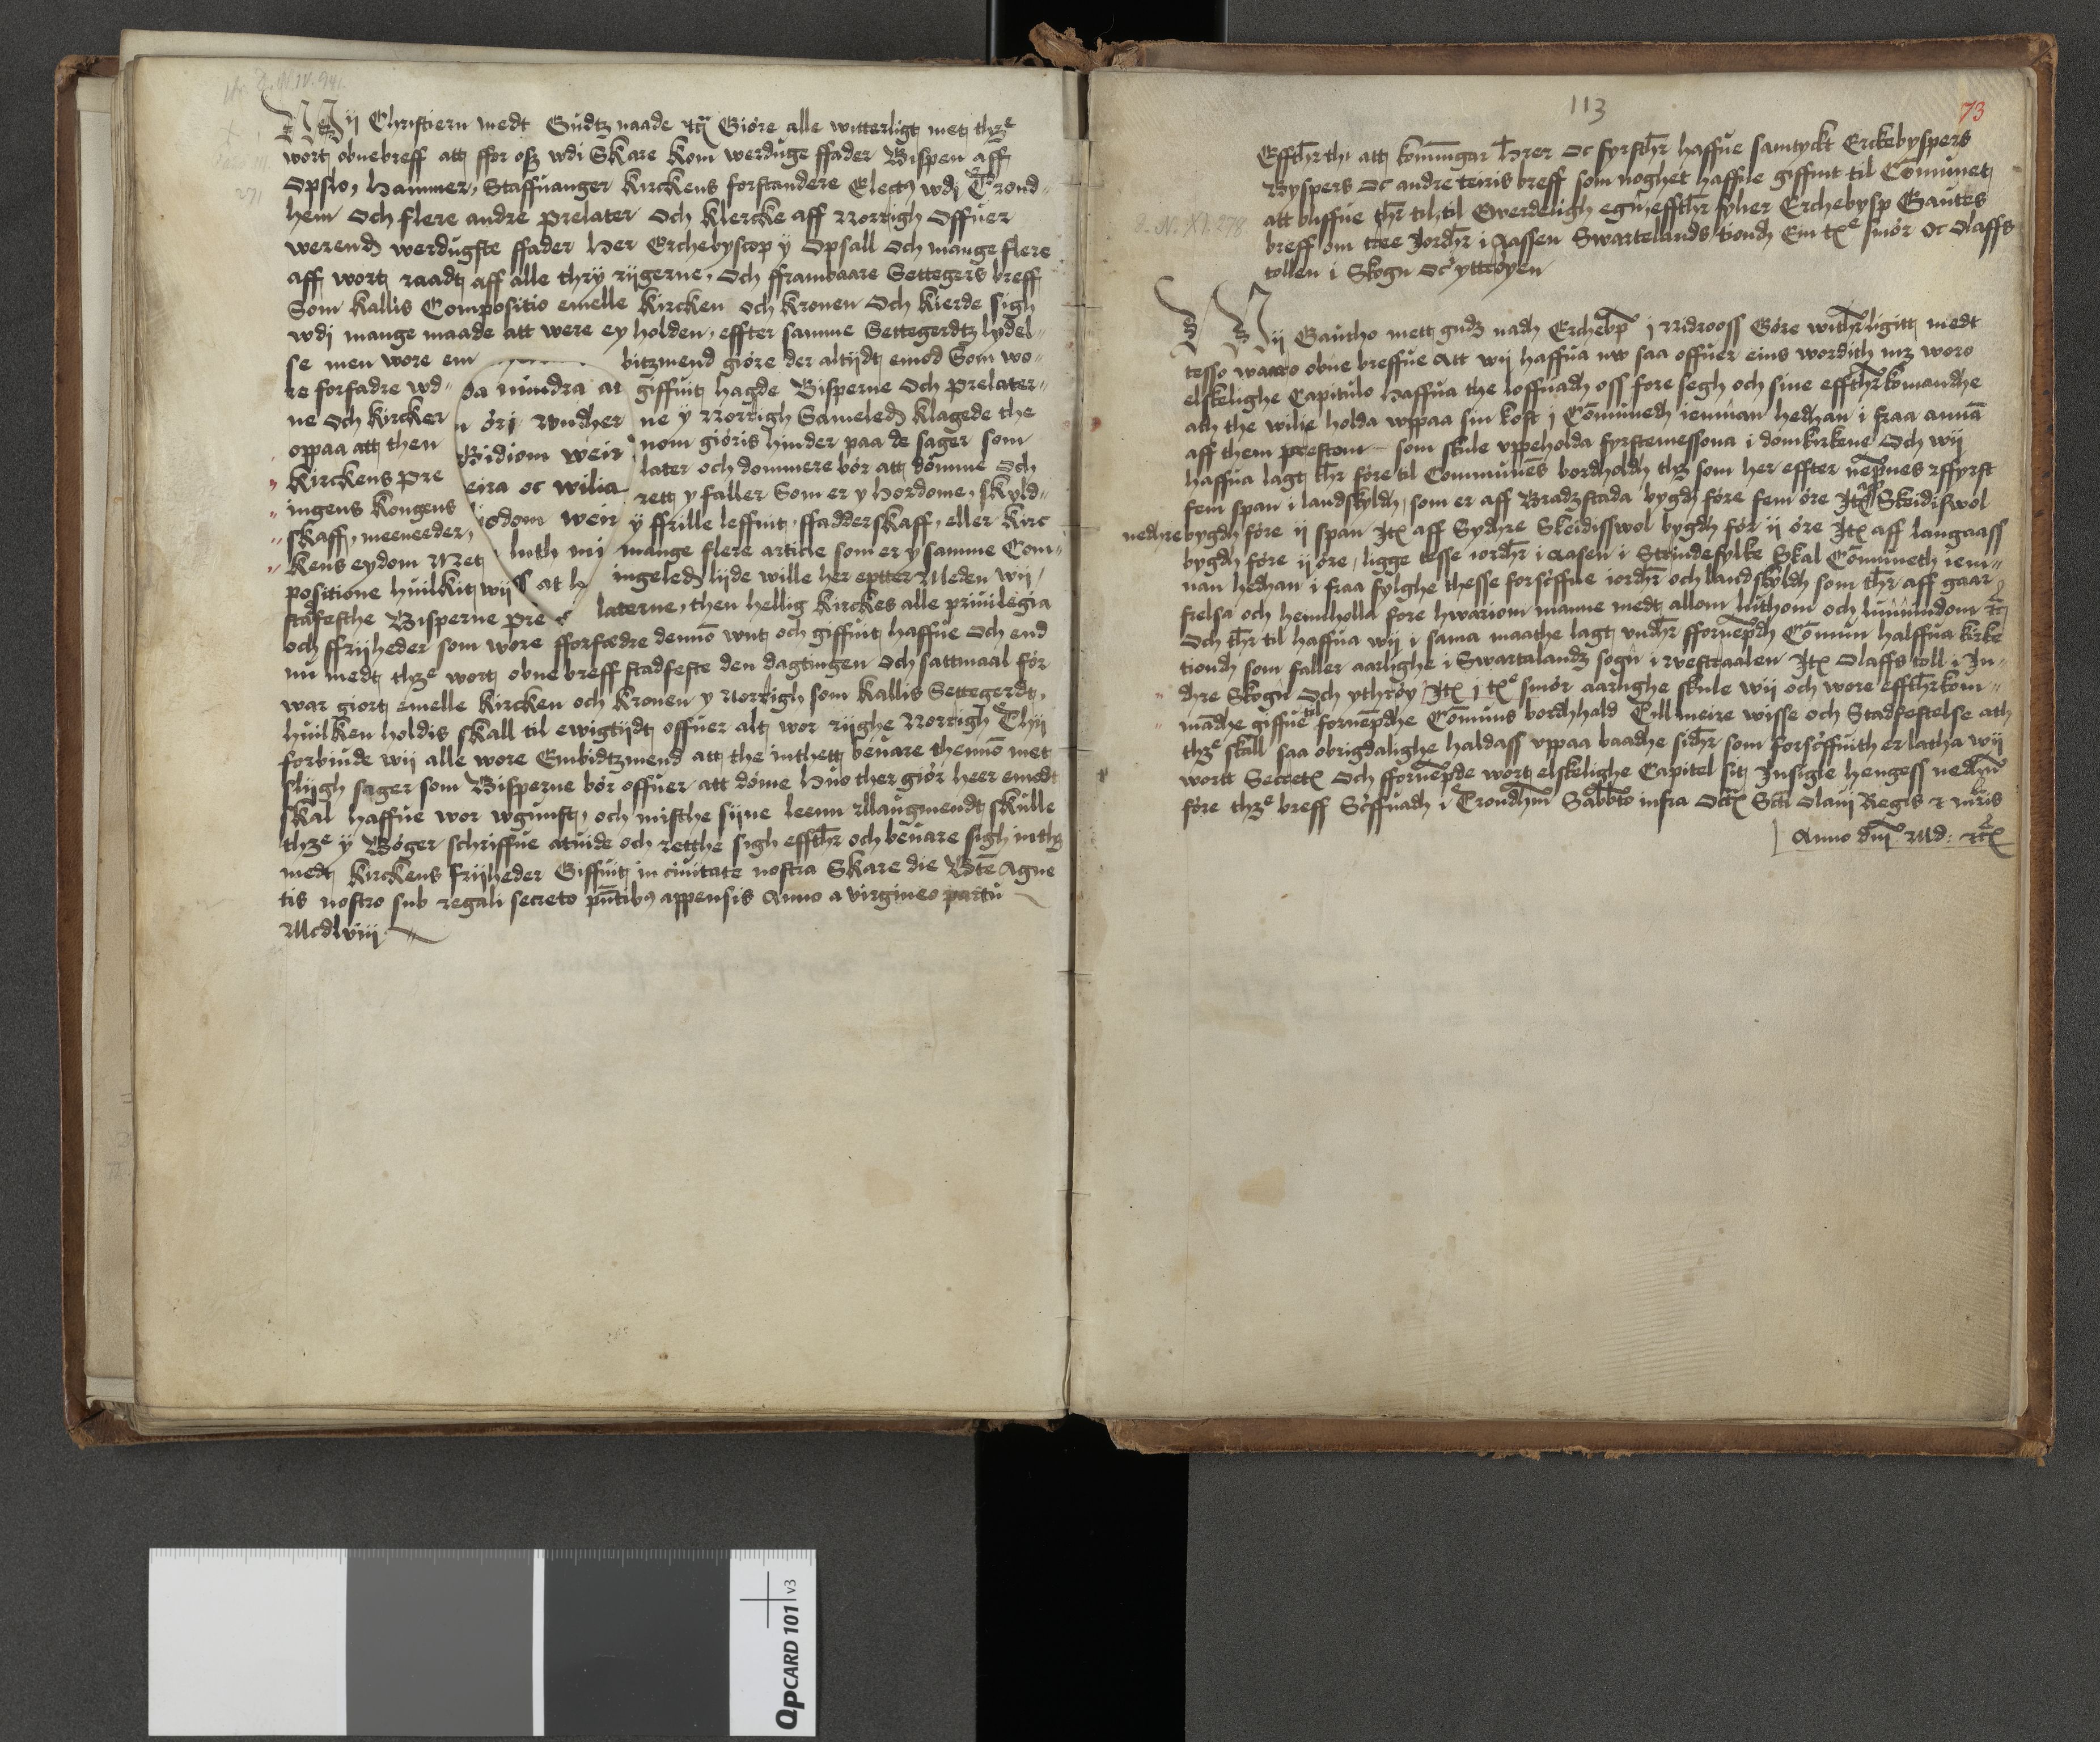 Wij Christiern medt Gudtz naade etc Giøre alle witterligt met thze
wort obnebreff att ffor osz wdi Skare kom werduge ffader Bispen aff
Opslo, Hammer, Staffuanger kirckens forstandere Electus wdj Trond-
hem Och flere andre prelater Och klercke aff Norrigh Offuer
werend werdugste ffader Her Erchebyscop y Opsall Och mange flere
aff wort raadt aff alle thry rijgerne, Och fframbaare Settegers breff
Som kallis Compositio emelle kircken och kronen Och kierde sigh
wdj mange maade att were ey holden, effter samme Settegerdtz lydel-
se men wore em bitzmend giøre der altijdt emod Som wo-
re forfadre wd- da mindra at giffuit hagde Bisperne Och prelater-
ne Och kircker n øri wndher ne y Norrigh Sameled klagede the
oppaa att then Bidiom weir nom giøris hinder paa de sager som
kirckens pre eira oc wilia later och dommere bør att dømme Och
ingens kongens iodom weir rett y faller Som er y Hordome, skyld-
skaff, meeneeder, luth mi y ffrille leffnit, ffadderskaff, eller kirc
kens eydom Met mange flere article som er y samme Com-
positione huilkit wij s at h ingeled lijde wille her eptter Meden wij
stafesthe Bisperne pre laterne, then hellig kirckes alle priuilegia
och ffrijheder som wore fforfædre dennō wnt och giffuit haffue Och end
nu medt thze wort obne breff stadfeste den dagtingen Och sattmaal før
war giort emelle kircken och kronen y Norrigh som kallis Settegerdt,
huilken holdis skall til ewigtijdt offuer alt wor rijghe Norrigh Thij
forbiude wij alle wore Embidtzmend att the inthett beuare thennō met
slijgh sager som Bisperne bør offuer att døme Huo ther giør heer emodt
skal haffue wor wgunst, och misthe sijne leenn Mlaugmendt skulle
thze y Bøger schriffue atuide och retthe sigh effthr och beuare sigh inthz
medt kirckens frijheder Giffuit in ciuitate nostra Skare die Bte Agne
tis nostro sub regali secreto pntibus appensis Anno a virgineo partu
Mcdlviij
113
73
Effthr thi att konungar Hrer Oc fyrsthr haffue samtyckt Erckebyspers
Byspers Oc andre teiris breff som noghet haffue giffuit til Comunet
att bliffue thr til, til Ewerdeligh egn, effthr fylier Erchebysp Gautes
breff om tree Jordhr i Aassen Swartelands tiond Em txe smør Oc Olaffs
tollen i Skogn Oc yttrøyen
D. N. XI. 278
Wij Gautho mett gudz nadh Erchebp j Nidrooss Gøre withrligitt medt
tesso waaro obne breffue Att wij haffua nw saa offuer eins wordith mz woro
elskelighe Capitulo Haffua the loffuadh oss fore segh och sine effthrkomandhe
ath the wilie holda wppaa sin kost j Comunedh iemnan hedhan i fraa annā
aff them prestom som skule vppeholda fyrstemessona i domkirkene Och wij
haffua lagt thr føre til Communēs bordhaldh thz som her effter nepnes xffyrst
fem span i landskyldh, som er aff Bradzstada bygdh føre fem øre Jtx aff Skeidiswol
nedrebygdh føre ij span Jtx aff Sydhre Skeidisswol bygdh før ij øre Jtx aff langaass
bygdh føre ij øre, ligge tesse iordhr i Aasen i Strindefylke Skal Comuneth iem-
nan hedhan i fraa fylghe thesse forscffne iordhr och landskyldh som thr aff gaar
frelsa och heimholla fore hwariom manne medt allom luthom och lunnindom etc
Och thr til haffua wij i sama maathe lagt vndhr ffornepdh Comun halffua kirke
tiondh som faller aarlighe i Swartalandz sogn i westraalen Jtx Olaffs toll i In-
dhre Skogn Och ythrøy Jtx j txe smør aarlighe skule wij och wore effthrkom-
mādhe giffue til fornepdhe Comuns bordhhald Till meire wisse och Stadfestelse ath
thze skall saa obrigdalighe haldass vppaa baadhe sidhr som forscffuith er latha wij
wortt Secretx Och ffornepde wort elskelighe Capitel sit Insigle hengess nedhn
føre thze breff Scffuadh i Trondhjm Sabbto infra Octx Scti Olaui Regis z mris
Anno dni Md: etx